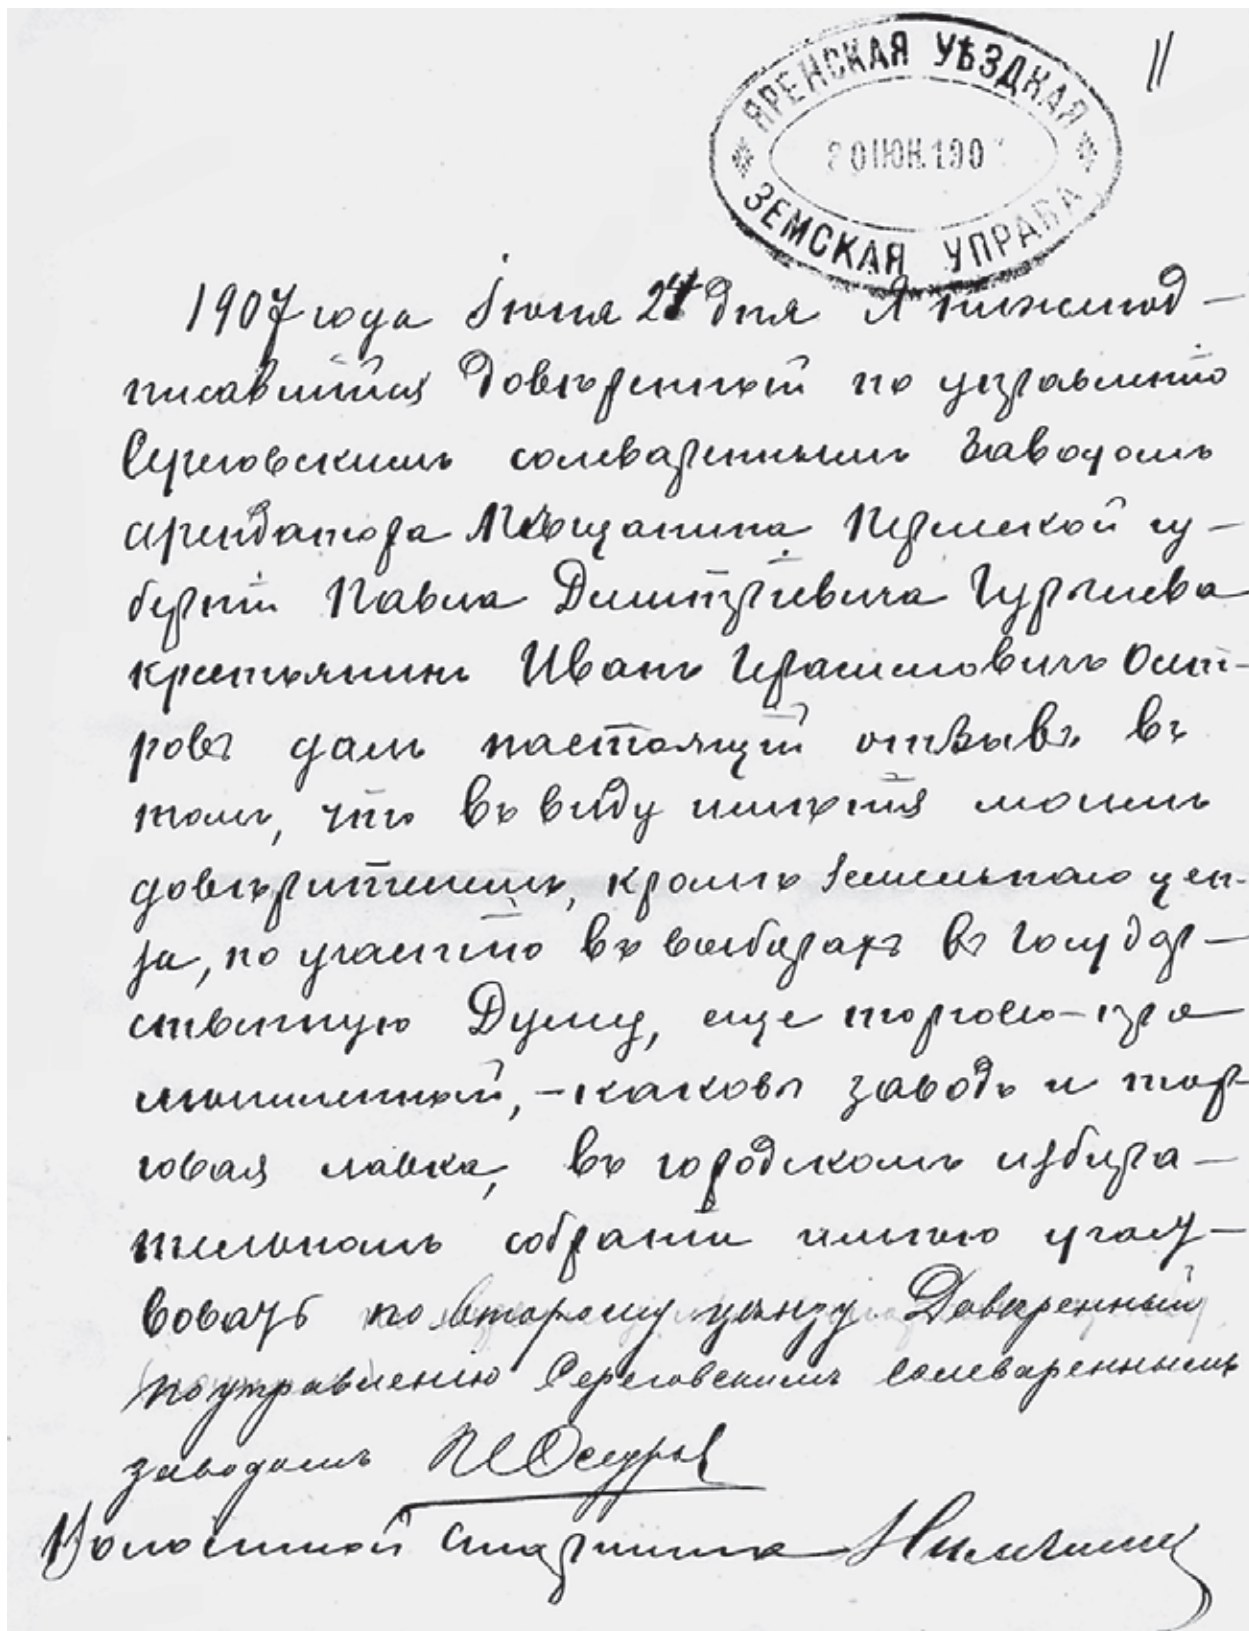 11
ЯРЕНСКАЯ УѢЗДКАЯ
ЗЕМСКАЯ УПРАВА
1907 года Іюня 24 дня Я нижепод-
писавшійся Довѣренный по управленію
Сереговскимъ солевареннымъ Заводомъ
арендатора Мѣщанина Пермской гу-
берніи Павла Димитріевича Гурылева
крестьянинъ Иванъ Герасимовичъ
ровъ далъ настоящій отзывъ въ
томъ, что въ виду имѣнія моимъ
довѣрителемъ, кромѣ Земельнаго цен-
за, по участію въ выборахъ въ Государ-
ственную Думу, еще торгово-про
мышленный, - каковы заводъ и тор-
говая лавка, въ городскомъ избира-
тельномъ собраніи имѣю участ-
вовать по второму цензу Довѣренный
по управленію Сереговскимъ Солевареннымъ
заводомъ
Волостной Старшина